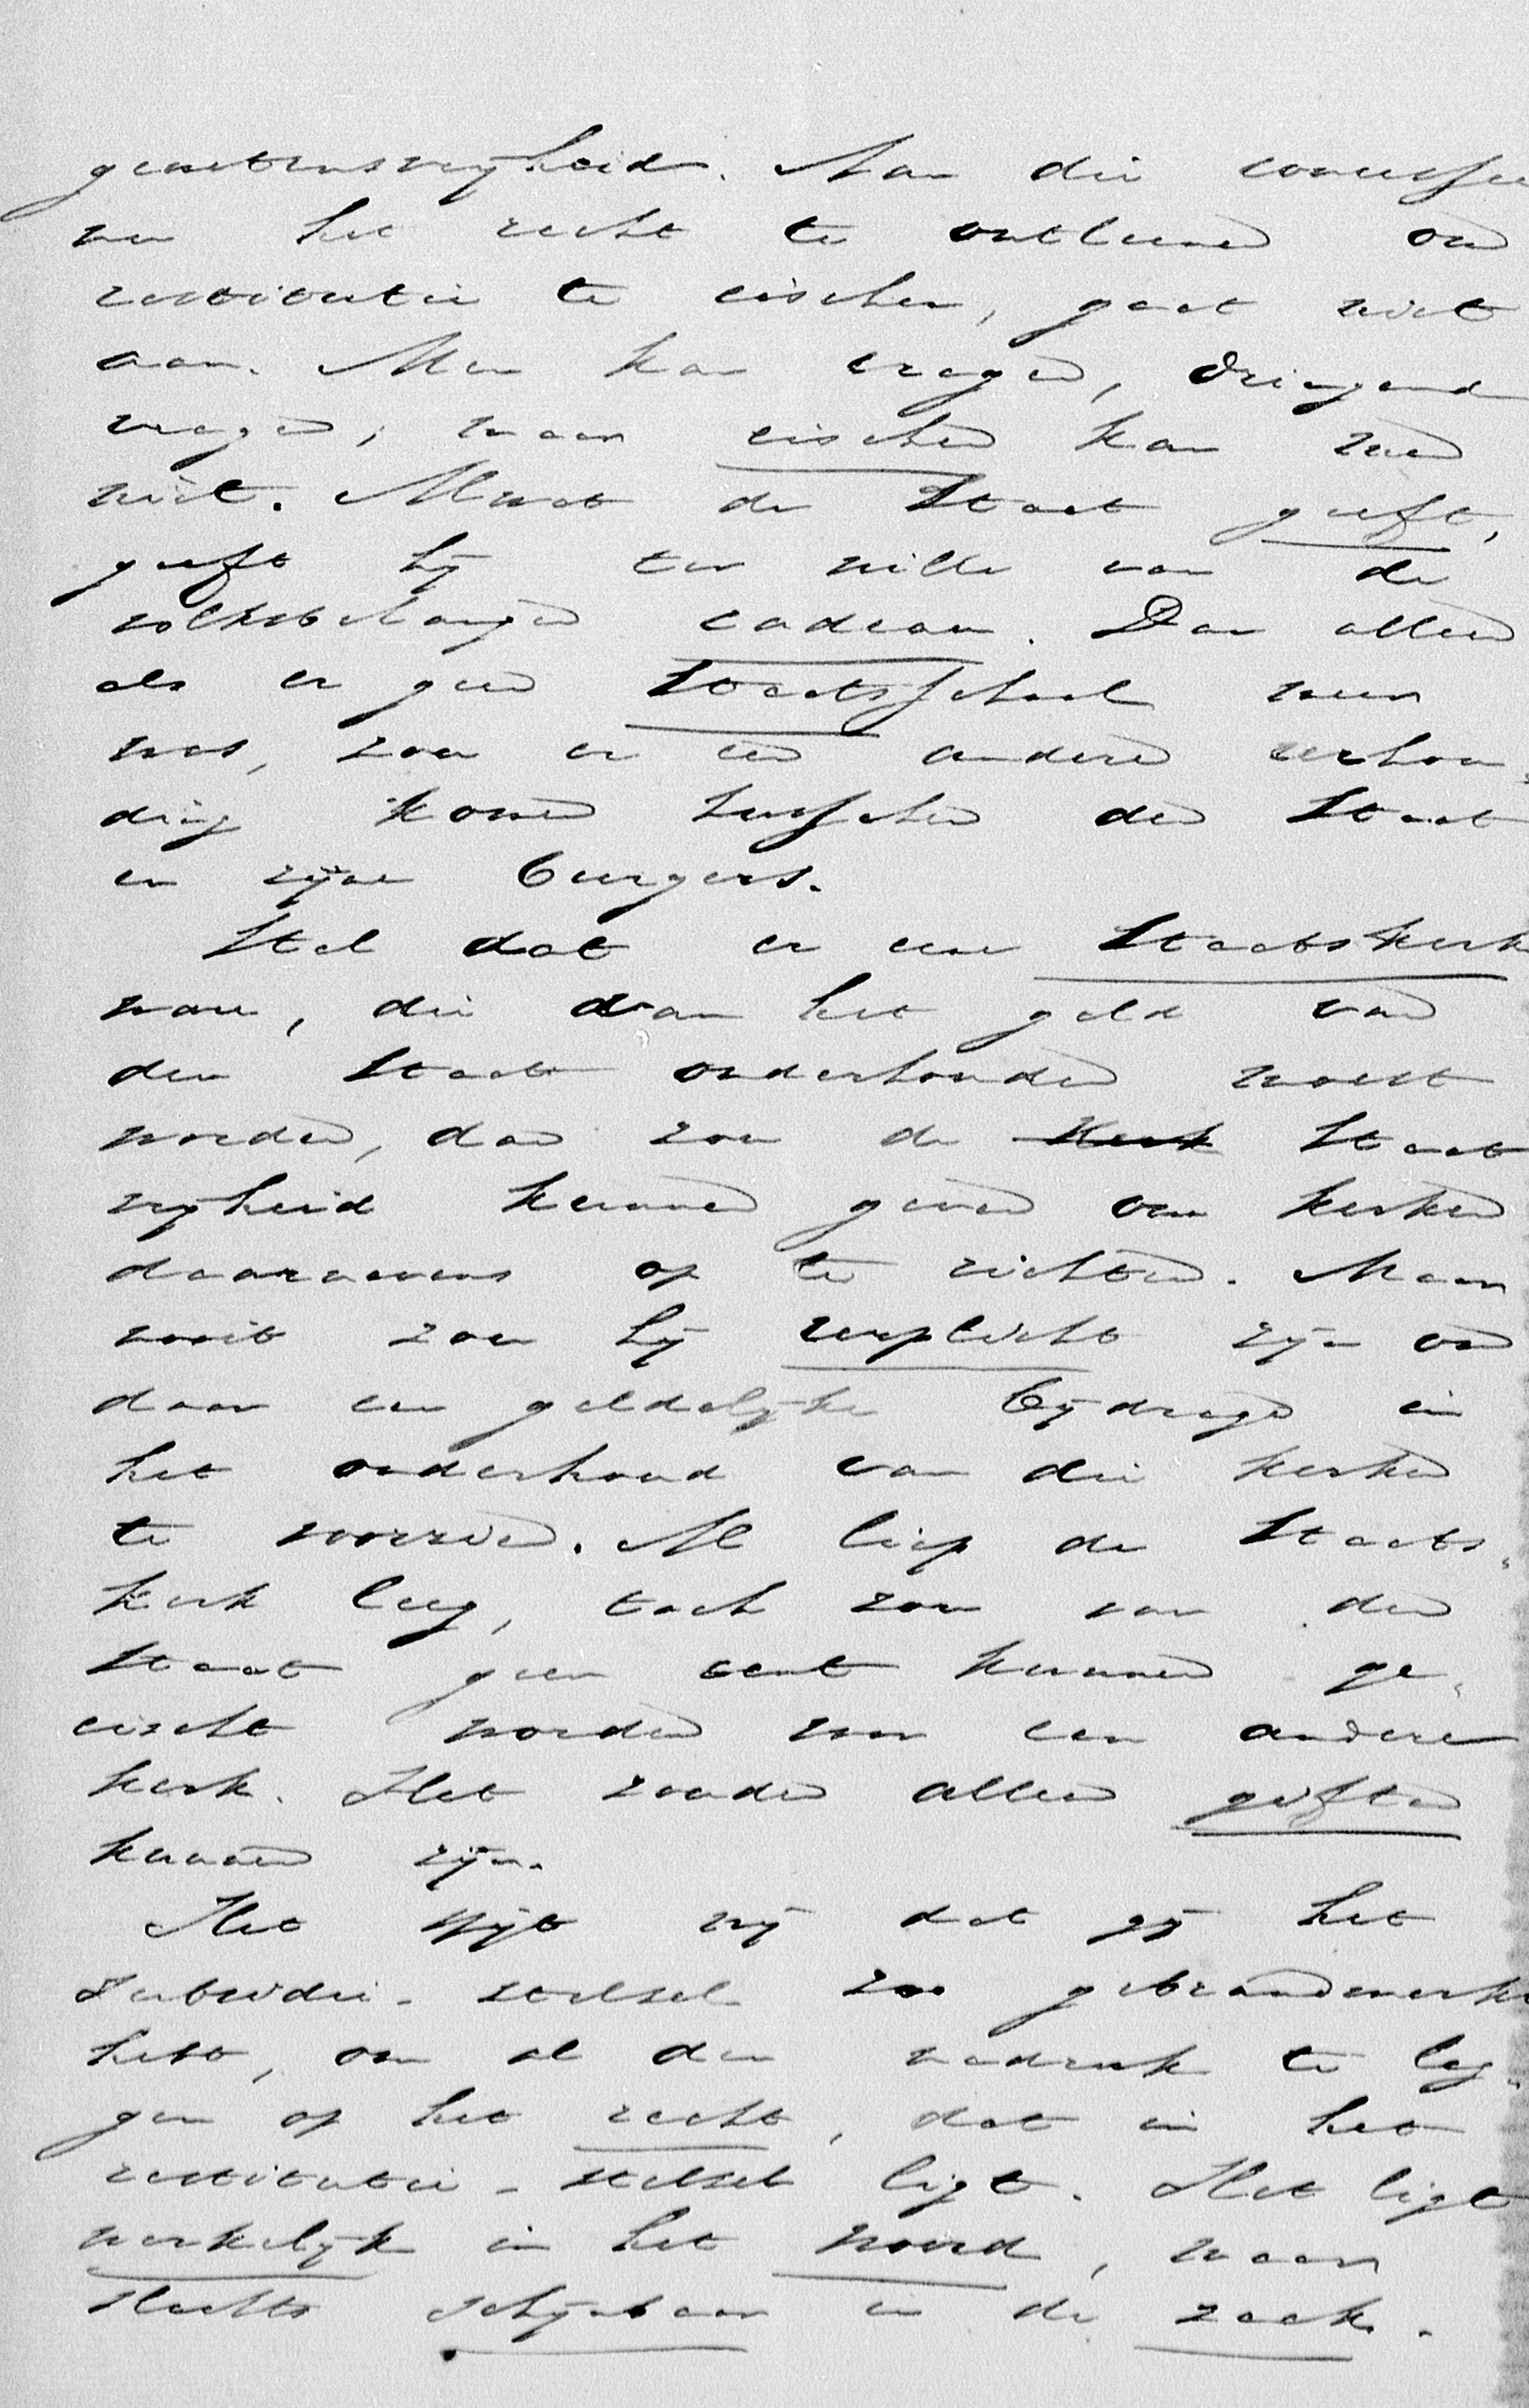 gewetensvrijheid. Aan die concessie
nu het recht te ontleenen om
restitutie te eischen, gaat niet
aan. Men kan vragen, dringend
vragen, maar eischen kan men
niet. Want de Staat geeft,
geeft hij ter wille van de
volksbelangen cadeau. Dan alleen
als er geen Staatsschool meer
was, zou er een andere verhou-
ding komen tusschen den Staat
en zijne burgers.
Stel dat er eene Staatskerk
ware, die van het geld van
den Staat onderhouden moest
worden, dan zou de Kerk Staat
vrijheid kunnen geven om kerken
daarnevens op te richten. Maar
nooit zou hij verplicht zijn om
door een geldelijke bijdrage in
het onderhoud van die kerken
te voorzien. Al liep de Staats-
kerk leeg, toch zou van den
Staat geen cent kunnen ge-
eischt worden voor een andere
kerk. Het zouden alleen giften
kunnen zijn.
Het spijt mij dat gij het
Subsidie-stelsel zoo gebrandmerkt
hebt, om al den nadruk te leg-
gen op het recht, dat in het
restitutie-stelsel ligt. Het ligt
werkelijk in het woord, maar
slechts schijnbaar in de zaak.